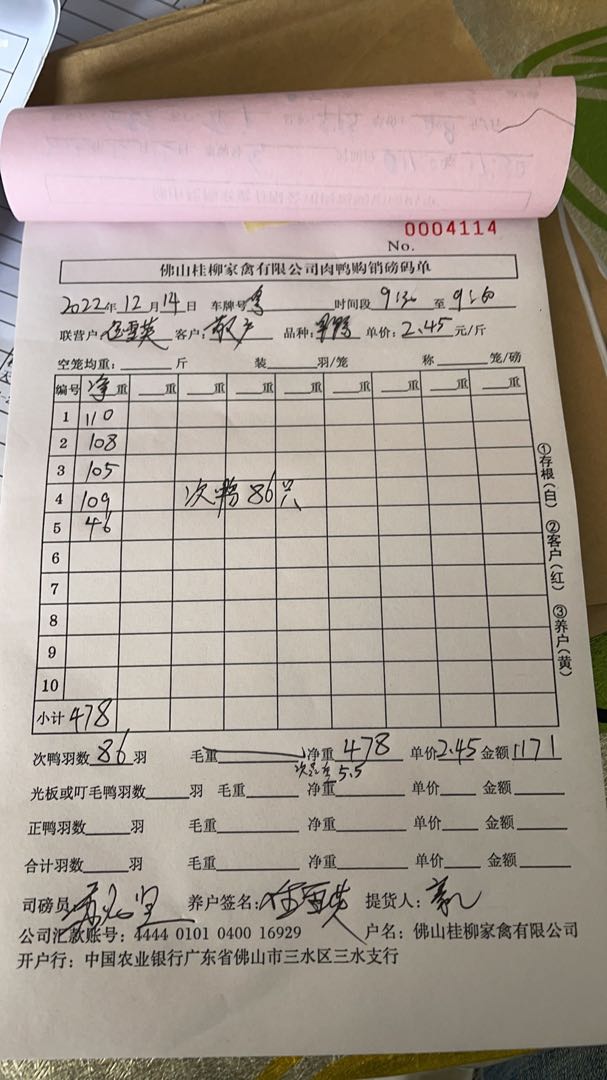 0004114
No.
佛山桂柳家禽有限公司肉鸭购销磅码单
2022年12月14日 车牌号粤 时间段 9:30 至 9:50
联营户 客户:散户 品种: 单价:2.45元/斤
空笼均重: 斤 装 羽/笼 称 笼/磅
编号 净重 重 重 重 重 重 重 重
1 110
2 108
3 105
4 109 次鸭86只
5 46
6
7
8
9
10
小计 478
①存根(白) ②客户(红) ③养户(黄)
次鸭羽数86羽 毛重 净重478 单价2.45 金额1171
5.5
光板或叮毛鸭羽数 羽 毛重 净重 单价 金额
正鸭羽数 羽 毛重 净重 单价 金额
合计羽数 羽 毛重 净重 单价 金额
司磅员: 养户签名: 提货人:
公司汇款账号:4444 0101 0400 16929 户名:佛山桂柳家禽有限公司
开户行:中国农业银行广东省佛山市三水区三水支行